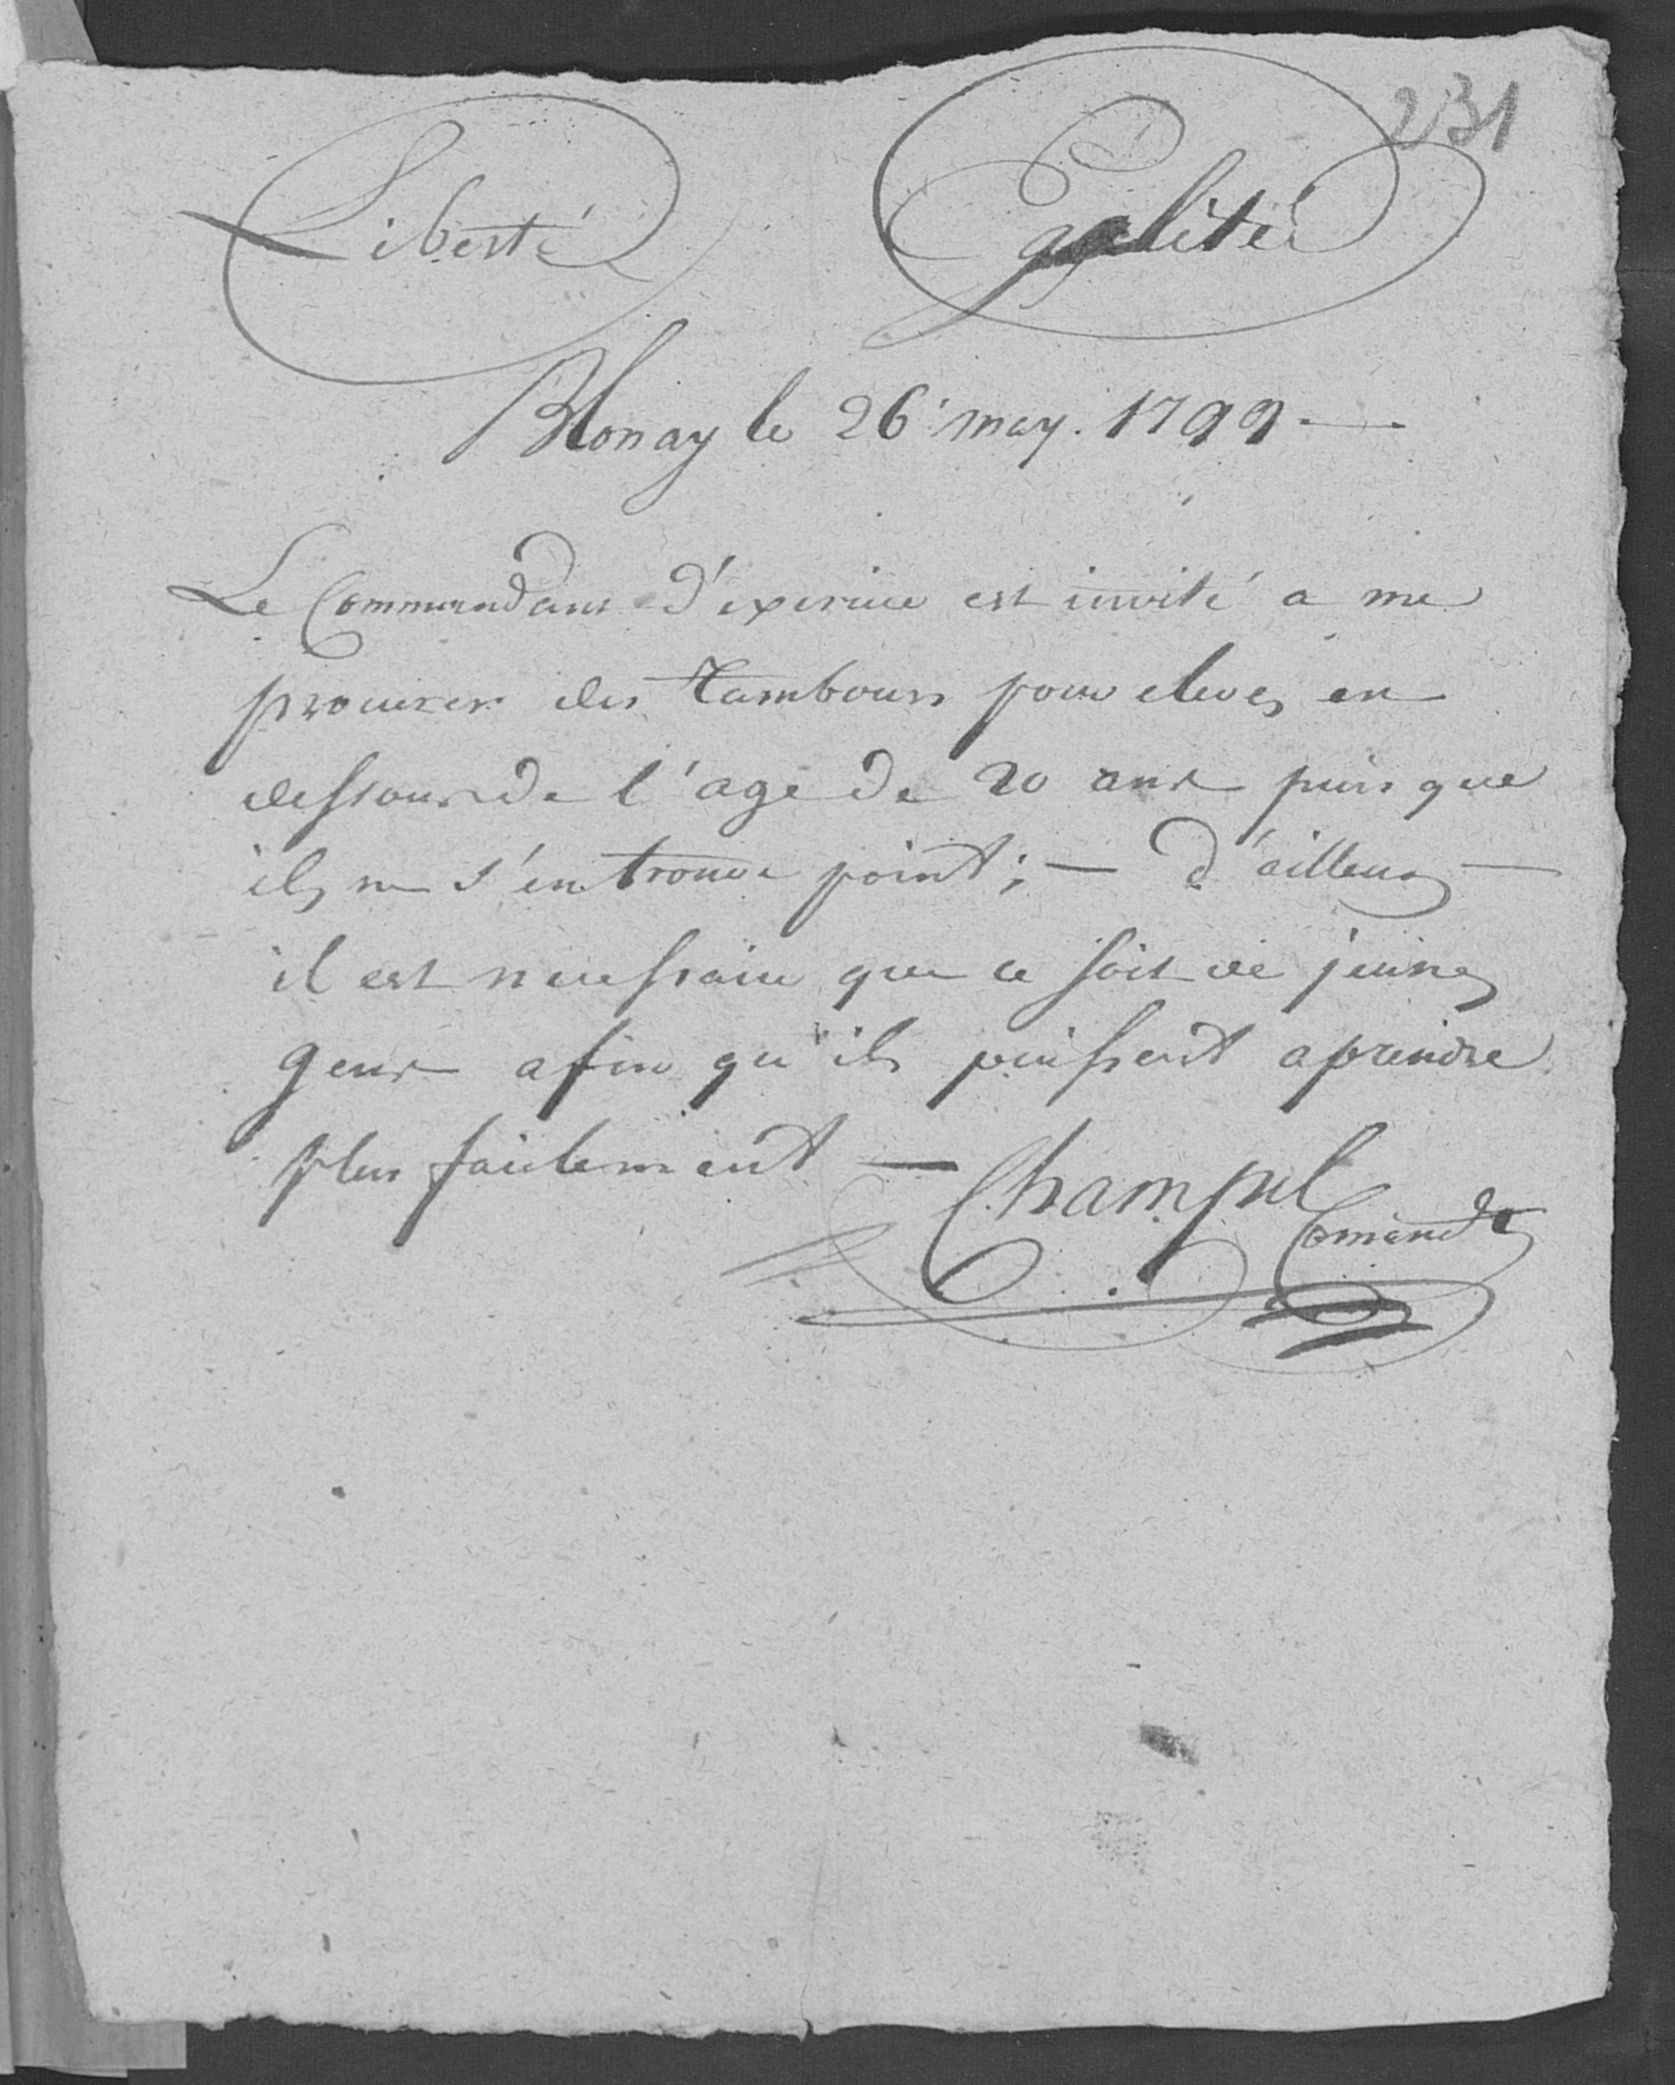 231
Liberté Egalité
Blonay le 26 may. 1799.
Le Commandant d'exercice est invité a me
procurer des tambours pour eleves en
dessous de l'age de 20 ans puis que
ils ne s'en trouve point; — d'ailleurs —
il est necessaire que ce soit de jeunes
gens afin qu'ils puissent aprendre
plus facilement — Champel
Comandt